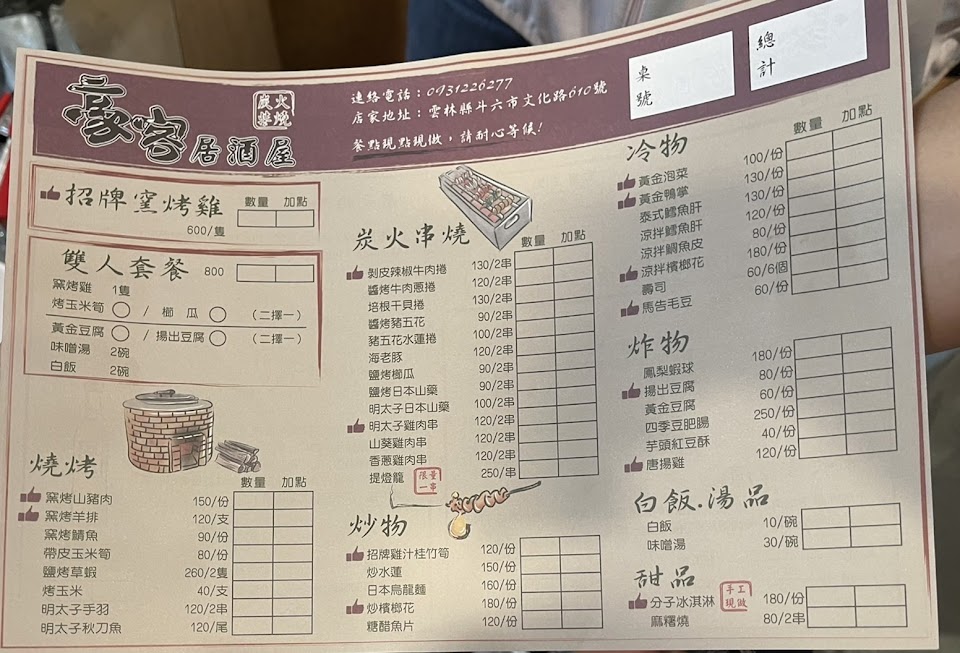 豪客居酒屋
炭火串燒
連絡電話：0931226277
店家地址：雲林縣斗六市文化路610號
餐點現點現做，請耐心等候!
桌號
總計
招牌窯烤雞 數量 加點
600/隻
雙人套餐 800
窯烤雞 1隻
烤玉米筍 / 櫛瓜 (二擇一)
黃金豆腐 / 揚出豆腐 (二擇一)
味噌湯 2碗
白飯 2碗
燒烤 數量 加點
窯烤山豬肉 150/份
窯烤羊排 120/支
窯烤鯖魚 90/份
帶皮玉米筍 80/份
鹽烤草蝦 260/2隻
烤玉米 40/支
明太子手羽 120/2串
明太子秋刀魚 120/尾
炭火串燒 數量 加點
剝皮辣椒牛肉捲 130/2串
醬烤牛肉蔥捲 120/2串
培根干貝捲 130/2串
醬烤豬五花 90/2串
豬五花水蓮捲 100/2串
海老豚 120/2串
鹽烤櫛瓜 90/2串
鹽烤日本山藥 90/2串
明太子日本山藥 100/2串
明太子雞肉串 120/2串
山葵雞肉串 120/2串
香蔥雞肉串 120/2串
提燈籠 限量一串 250/串
炒物
招牌雞汁桂竹筍 120/份
炒水蓮 150/份
日本烏龍麵 160/份
炒檳榔花 180/份
糖醋魚片 120/份
冷物 數量 加點
黃金泡菜 100/份
黃金鴨掌 130/份
泰式鱈魚肝 130/份
涼拌鱈魚肝 120/份
涼拌鯛魚皮 80/份
涼拌檳榔花 180/份
壽司 60/6個
馬告毛豆 60/份
炸物
鳳梨蝦球 180/份
揚出豆腐 80/份
黃金豆腐 60/份
四季豆肥腸 250/份
芋頭紅豆酥 40/份
唐揚雞 120/份
白飯.湯品
白飯 10/碗
味噌湯 30/碗
甜品 手工現做
分子冰淇淋 180/份
麻糬燒 80/2串